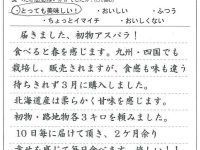 ・とっても美味しい！ ・おいしい ・ふつう
・ちょっとイマイチ ・おいしくない
届きました、初物アスパラ！
食べると春を感じます。九州・四国でも
栽培し、販売されますが、食感も味も違う
待ちきれず3月に購入しました。
北海道産は柔らかく甘味を感じます。
初物・路地物各3キロを頼みました。
10日毎に届けて頂き、2ケ月余り
幸せを感じて毎日食べます。嬉しい！！